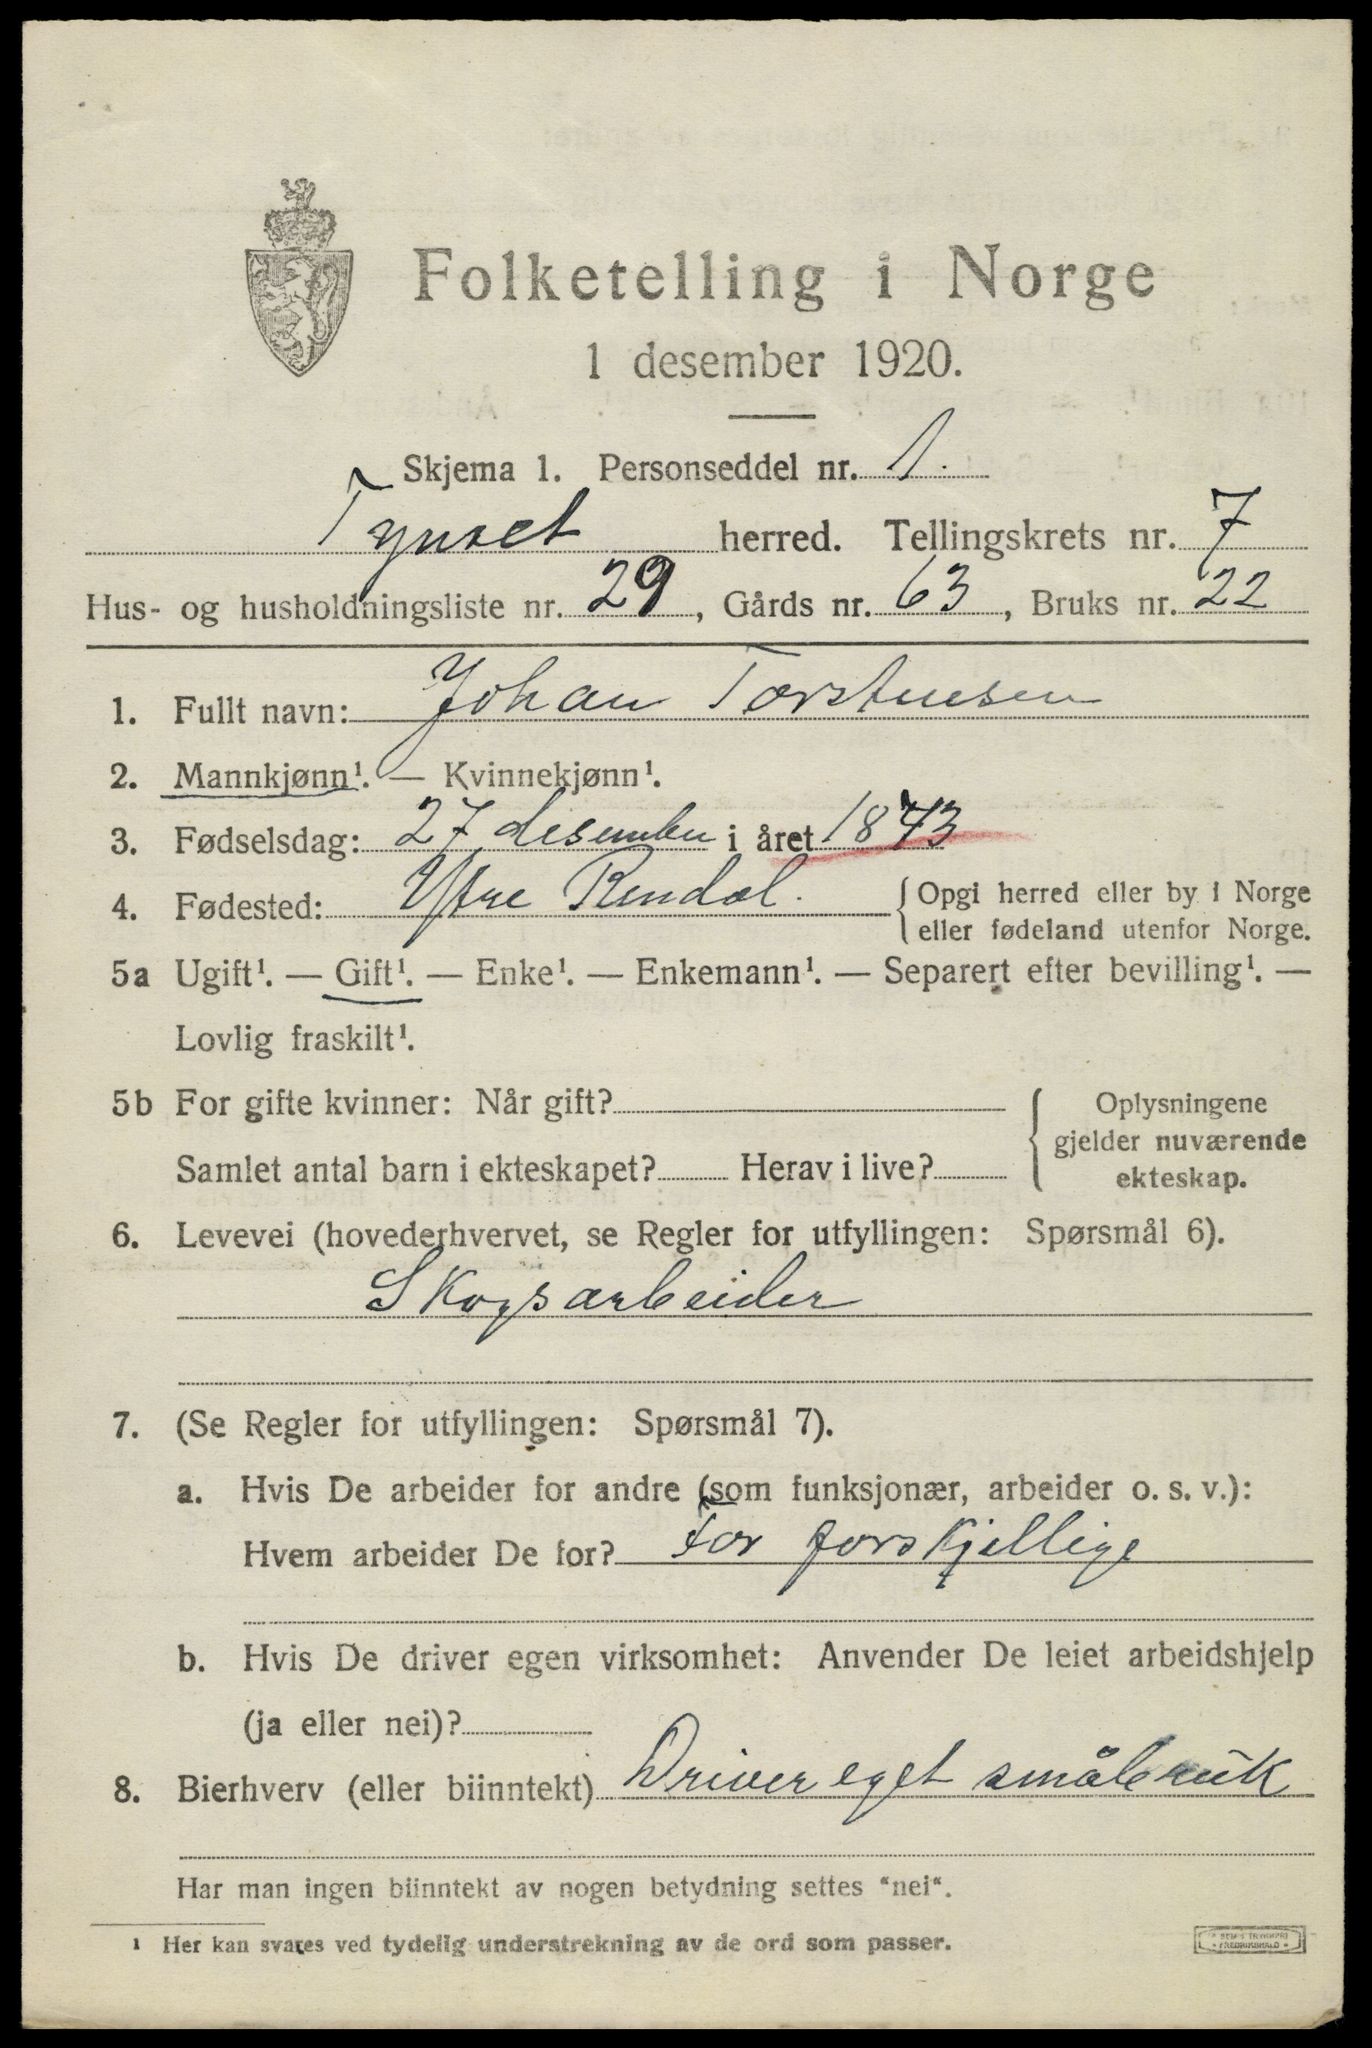 Folketelling i Norge
1 desember 1920.
Skjema 1. Personseddel nr. 1.
Tynset herred. Tellingskrets nr. 7
Hus- og husholdningsliste nr. 29, Gårds nr. 63, Bruks nr. 22
1. Fullt navn: Johan Torstensen
2. Mannkjønn¹. — Kvinnekjønn¹.
3. Fødselsdag: 27 desember i året 1843
4. Fødested: Ytre Rendal. { Opgi herred eller by i Norge
eller fødeland utenfor Norge.
5a Ugift¹. — Gift¹. — Enke¹. — Enkemann¹. — Separert efter bevilling¹. —
Lovlig fraskilt¹.
5b For gifte kvinner: Når gift?
Samlet antal barn i ekteskapet? Herav i live?
{ Oplysningene
gjelder nuværende
ekteskap.
6. Levevei (hovederhvervet, se Regler for utfyllingen: Spørsmål 6).
Skogsarbeider
7. (Se Regler for utfyllingen: Spørsmål 7).
a. Hvis De arbeider for andre (som funksjonær, arbeider o. s. v.):
Hvem arbeider De for? For forskjellige
b. Hvis De driver egen virksomhet: Anvender De leiet arbeidshjelp
(ja eller nei)?
8. Bierhverv (eller biinntekt) Driver eget småbruk
Har man ingen biinntekt av nogen betydning settes "nei".
¹ Her kan svares ved tydelig understrekning av de ord som passer.